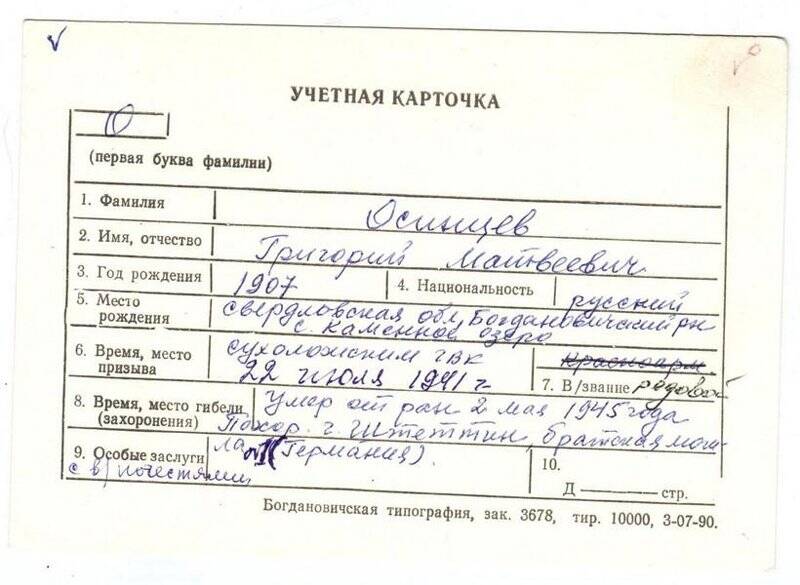 УЧЕТНАЯ КАРТОЧКА
О
(первая буква фамилии)
1. Фамилия Осинцев
2. Имя, отчество Григорий Матвеевич
3. Год рождения 1907 4. Национальность русский
5. Место рождения Свердловская обл, Богдановичский рн
с. Каменное озеро
6. Время, место призыва Сухоложским ГВК
22 июля 1941 г
красноарм
7. В/звание рядовой
8. Время, место гибели (захоронения) Умер от ран 2 мая 1945 года
Похор. г. Штеттин, братская мог-
9. Особые заслуги ла (Германия).
с в/почестями
10.
Д — стр.
Богдановичская типография, зак. 3678, тир. 10000, 3-07-90.